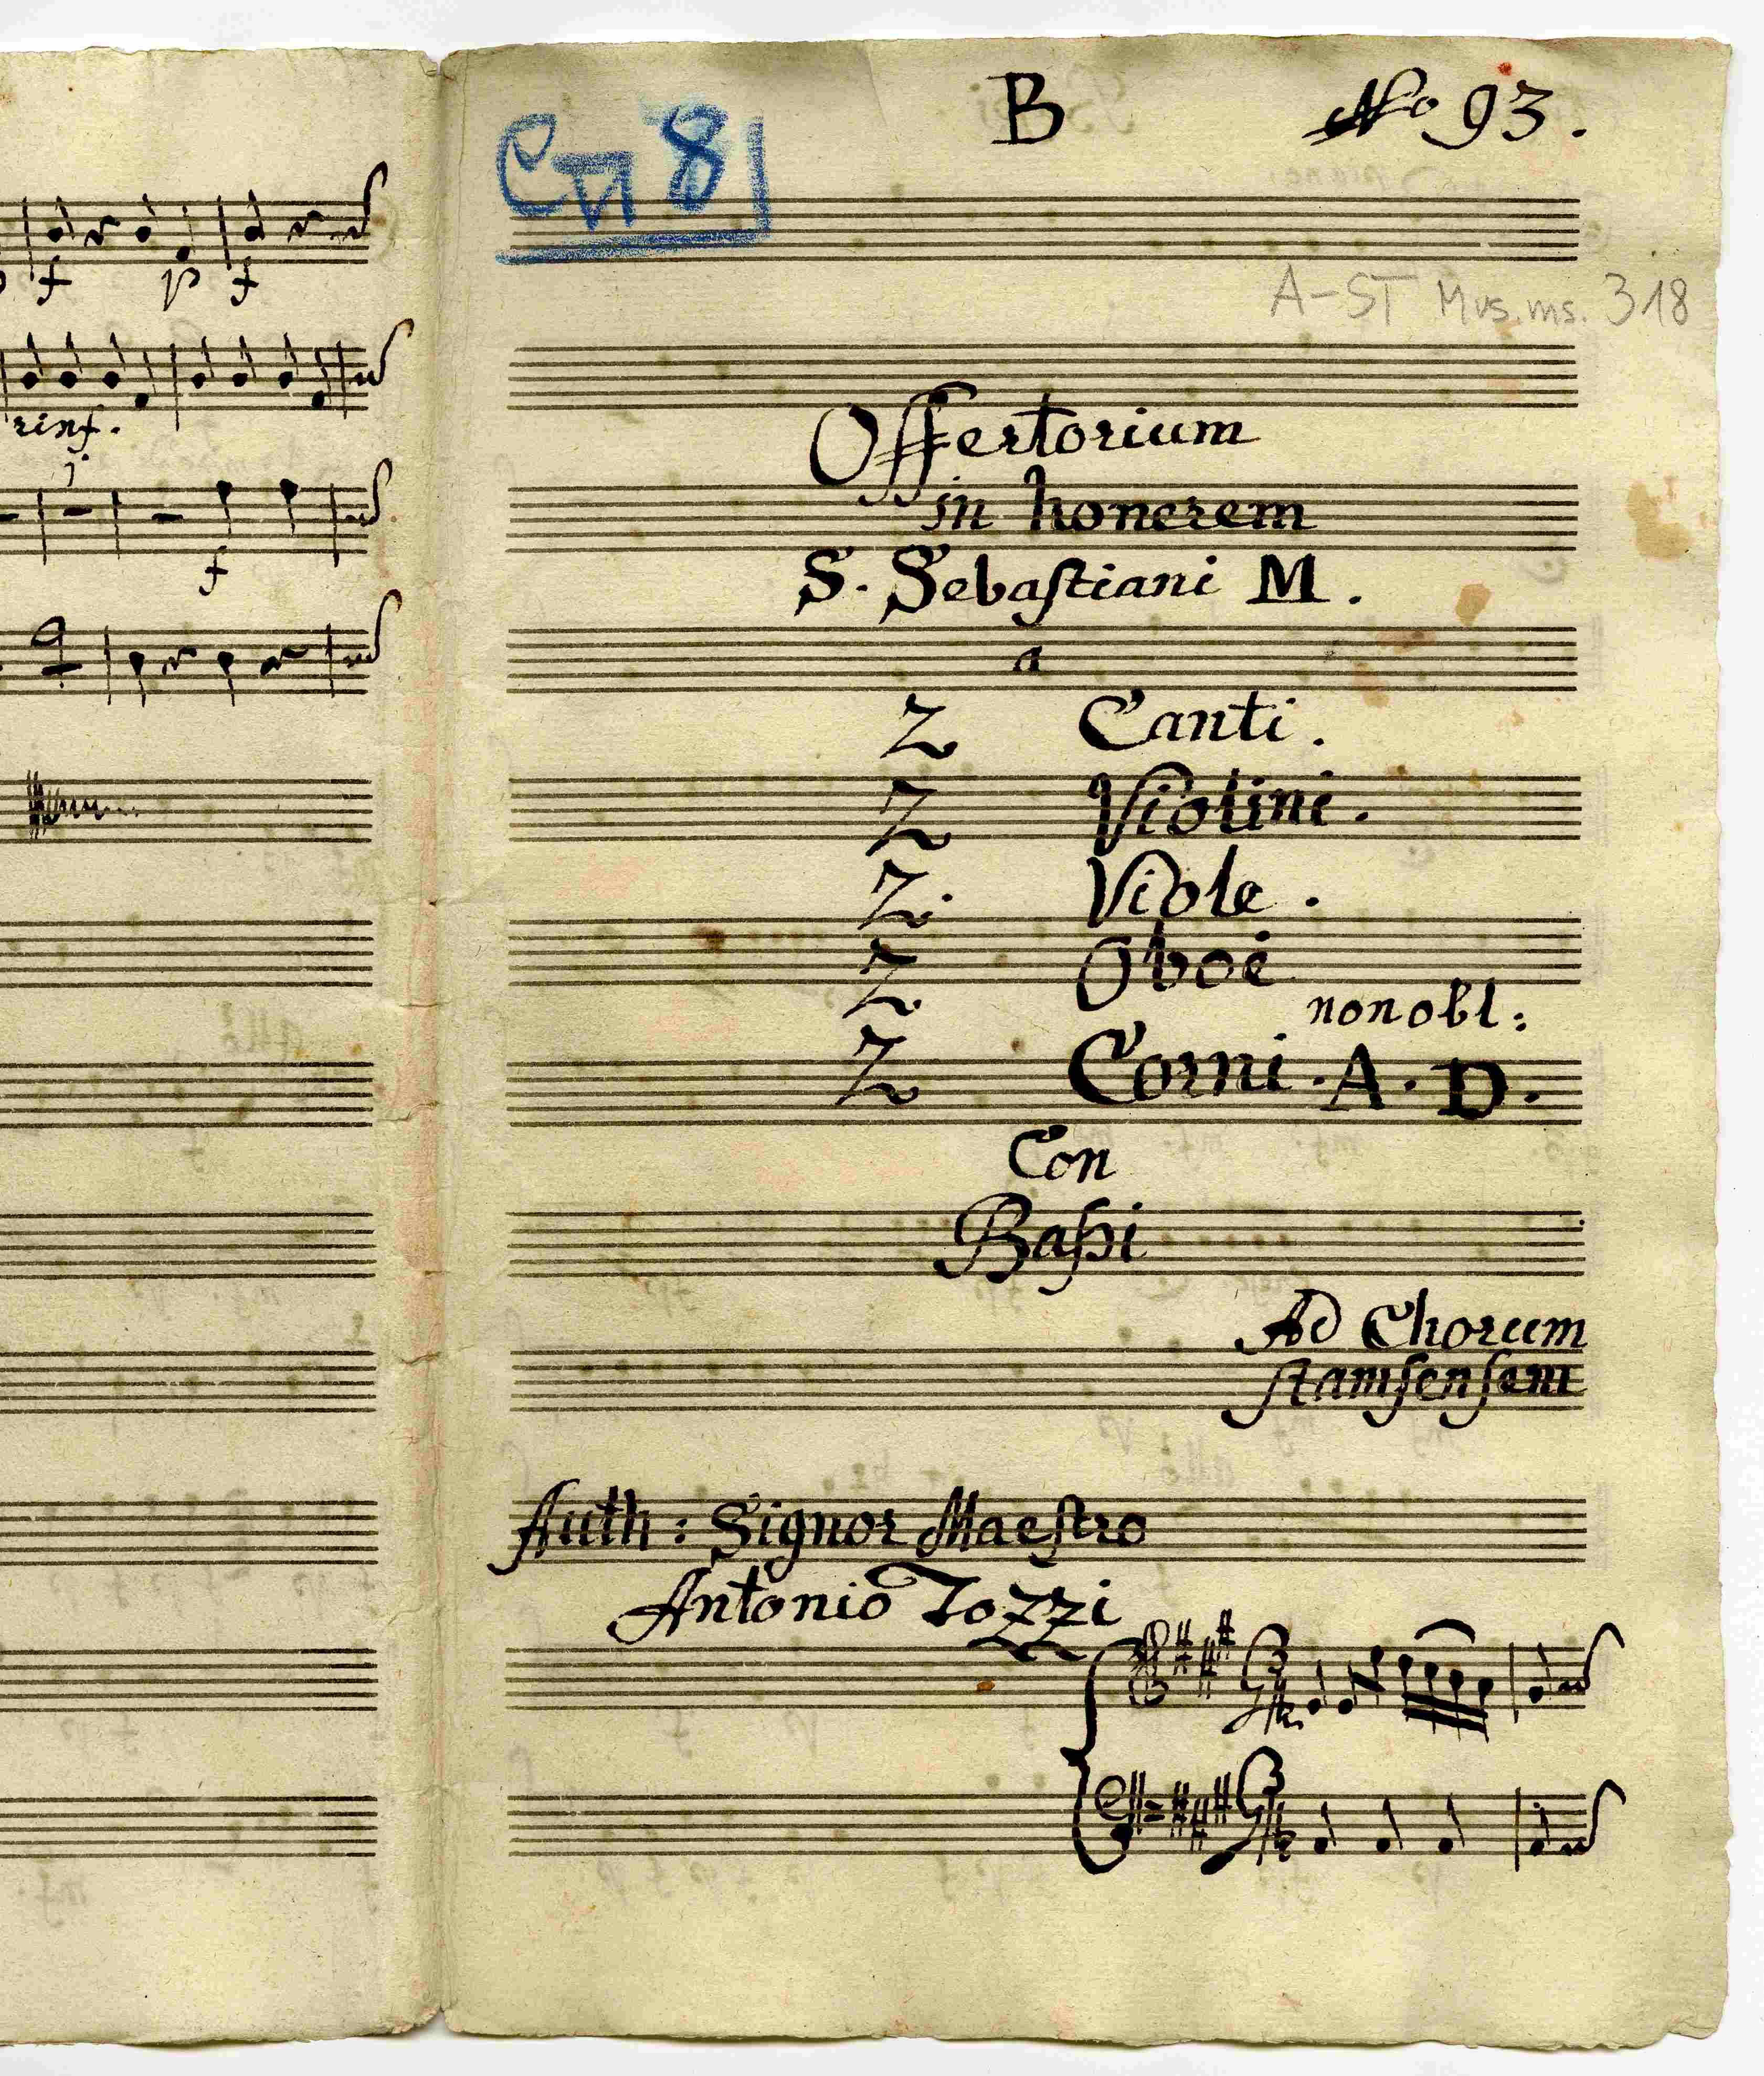 f p f
rinf.
f
B No 93.
C VI 8
A-ST Mus.ms. 318
Offertorium
in honerem
S. Sebastiani M.
a
2 Canti.
2 Violini.
2. Viole.
2 Oboe
nonobl:
2 Corni. A. D.
Con
Baßi
Ad Chorum
stamsensem
Auth: Signor Maestro
Antonio Tozzi